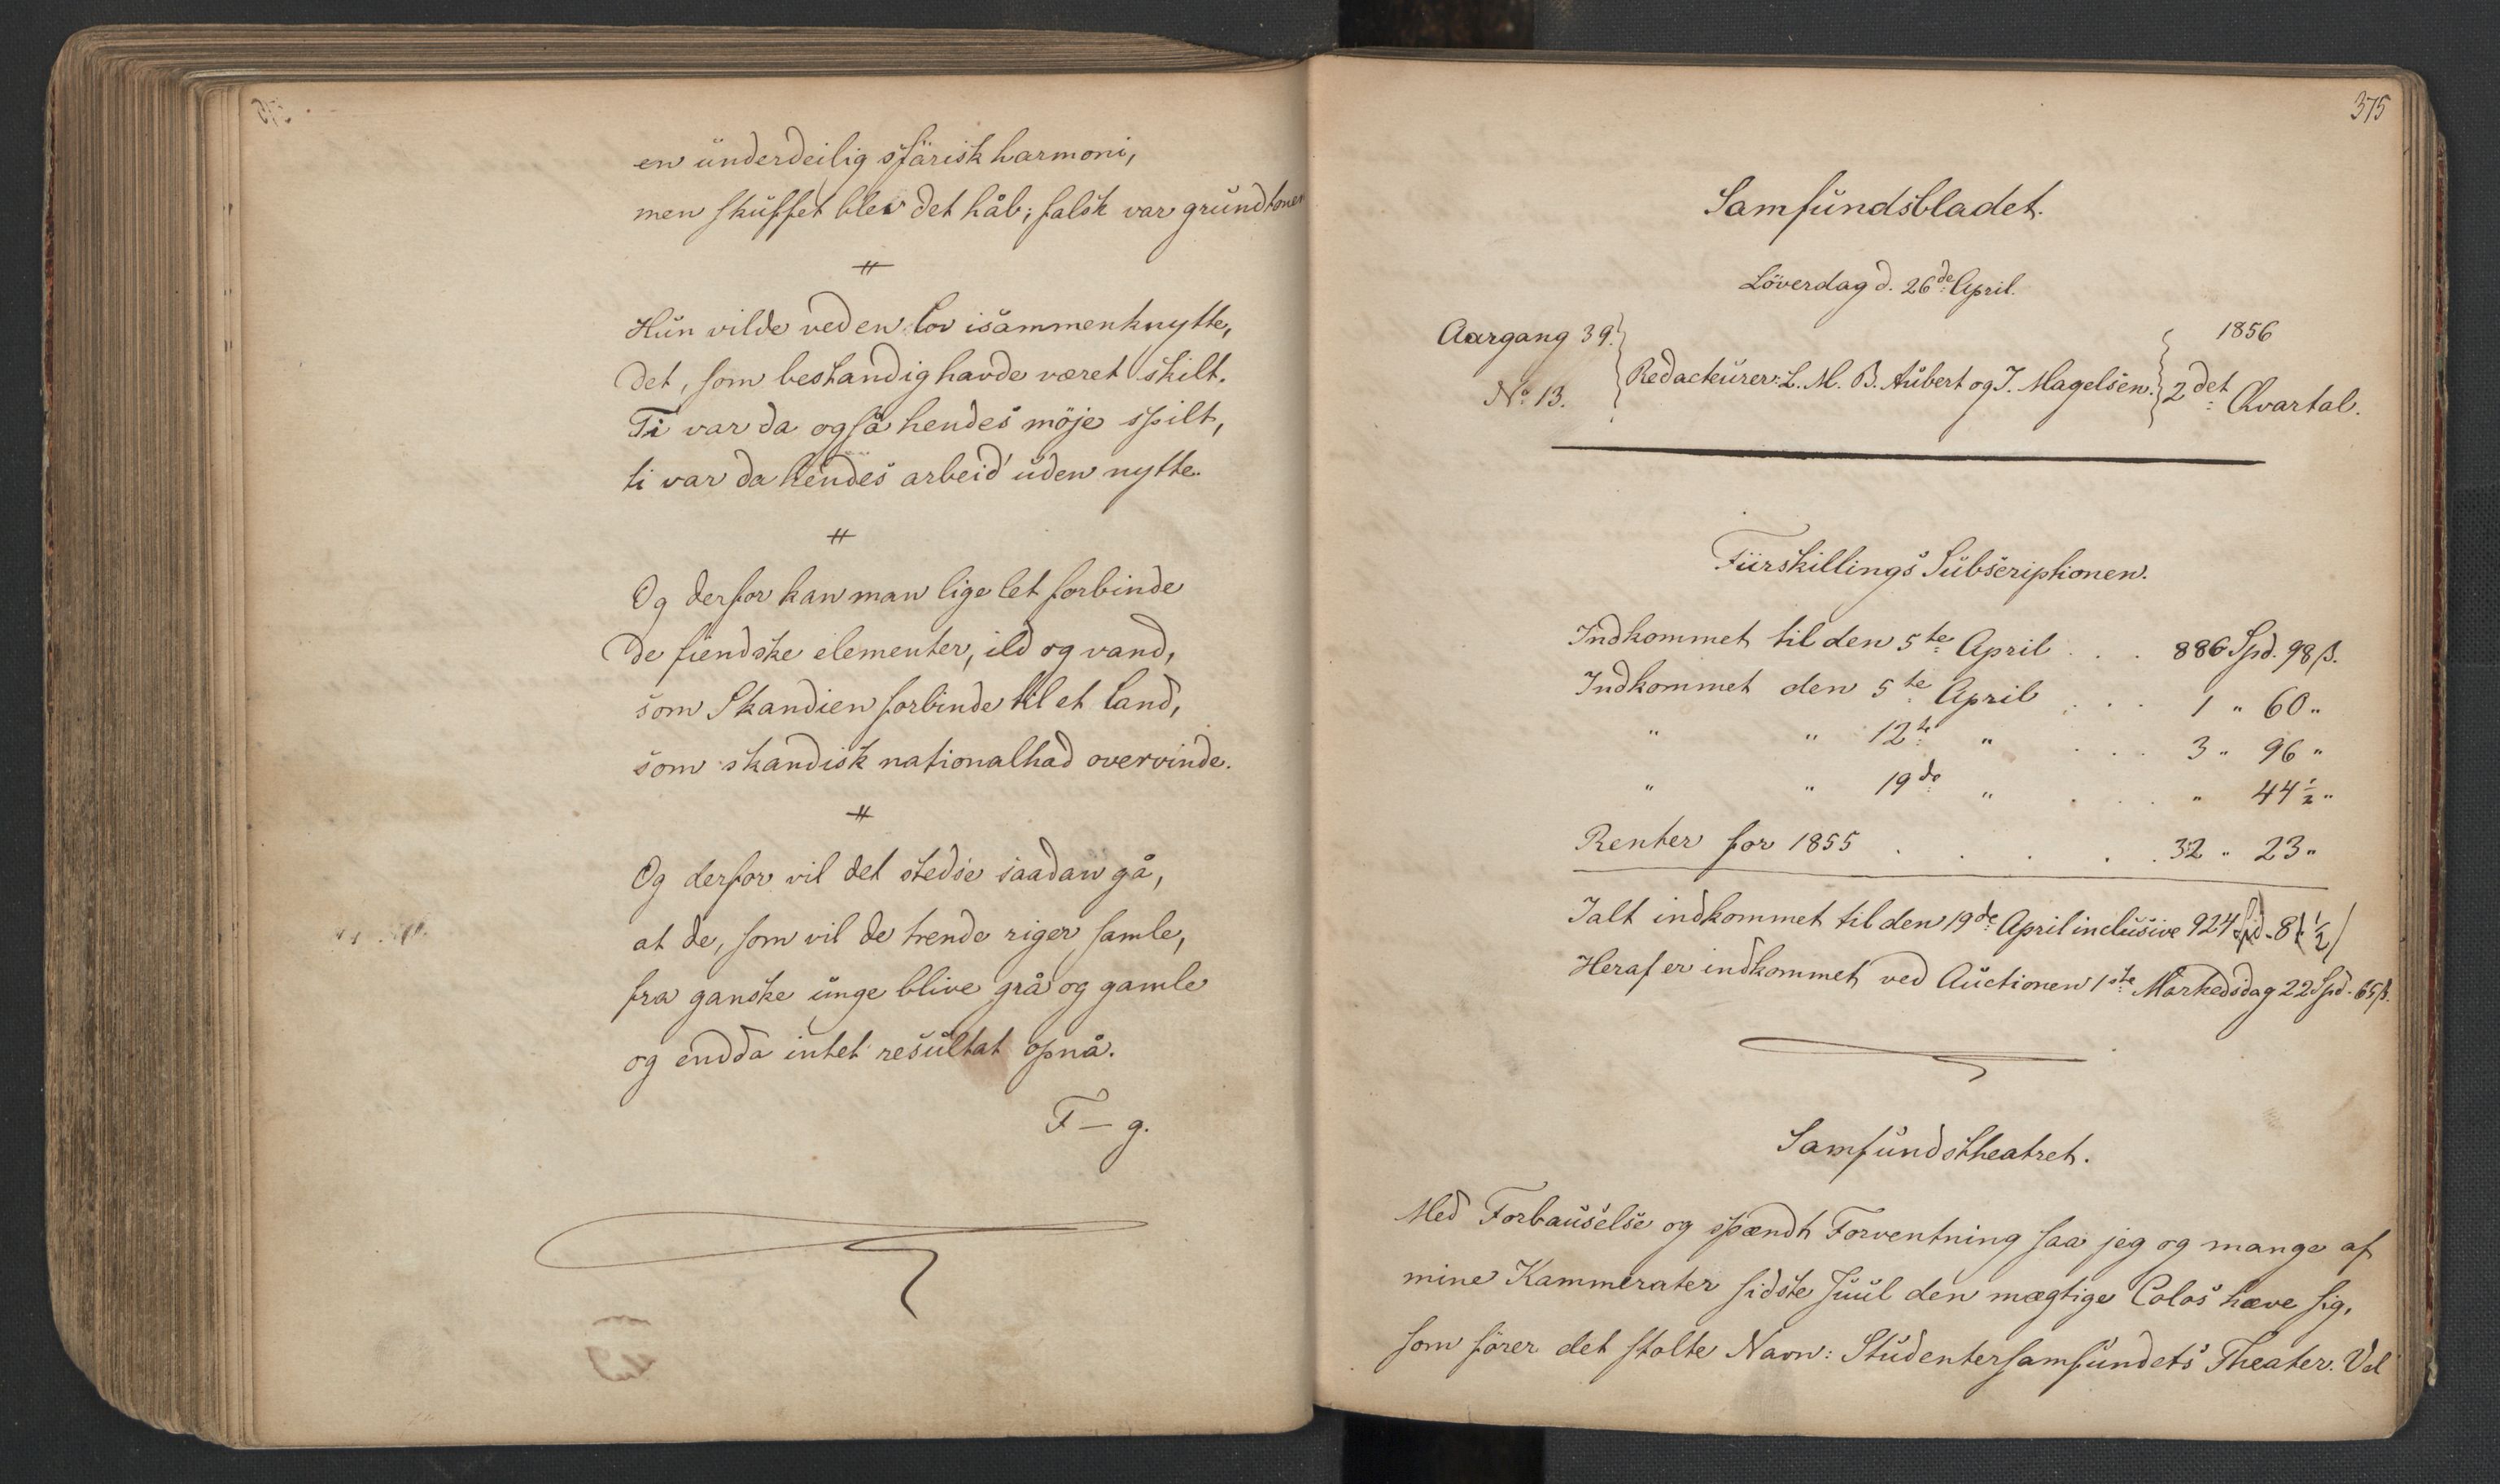 en underdeilig sfärisk harmoni,
men skuffet blev det håb; falsk var grundtonen
Hun vilde ved en lov isammenknytte,
det, som bestandig havde været skilt.
Ti var da også hendes möje spilt,
ti var da hendes arbeid uden nytte.
Og derfor kan man lige let forbinde
de fiendske elementer, ild og vand,
som Skandien forbinde til et land,
som skandisk nationalhad overvinde.
Og derfor vil det stedse saadan gå,
at de, som vil de trende riger samle,
fra ganske unge blive grå og gamle
og endda intet resultat opnå.
F—g.
375
Samfundsbladet.
Löverdag d. 26de April.
Aargang 39.
No 13.
Redacteurer: L. M. B. Aubert og J. Magelsen.
1856
2det Qvartal.
Fiirskillings Subscriptionen.
Indkommet til den 5te April . . . 886 Spd. 98 ß.
Indkommet den 5te April . . . 1 " 60 "
" " 12te " . . . 3 " 96 "
" " 19de " . . . " 44 1/2 "
Renter for 1855 . . . . . 32 " 23 "
Ialt indkommet til den 19de April inclusive 924 Spd. 81 1/2
Heraf er indkommet ved Auctionen 1ste Markedsdag 22 Spd. 65 ß.
Samfundstheatret.
Med Forbauselse og spændt Forventning saa jeg og mange af
mine Kammerater sidste Juul den mægtige Colos hæve sig,
som förer det stolte Navn: Studentersamfundets Theater. Vel